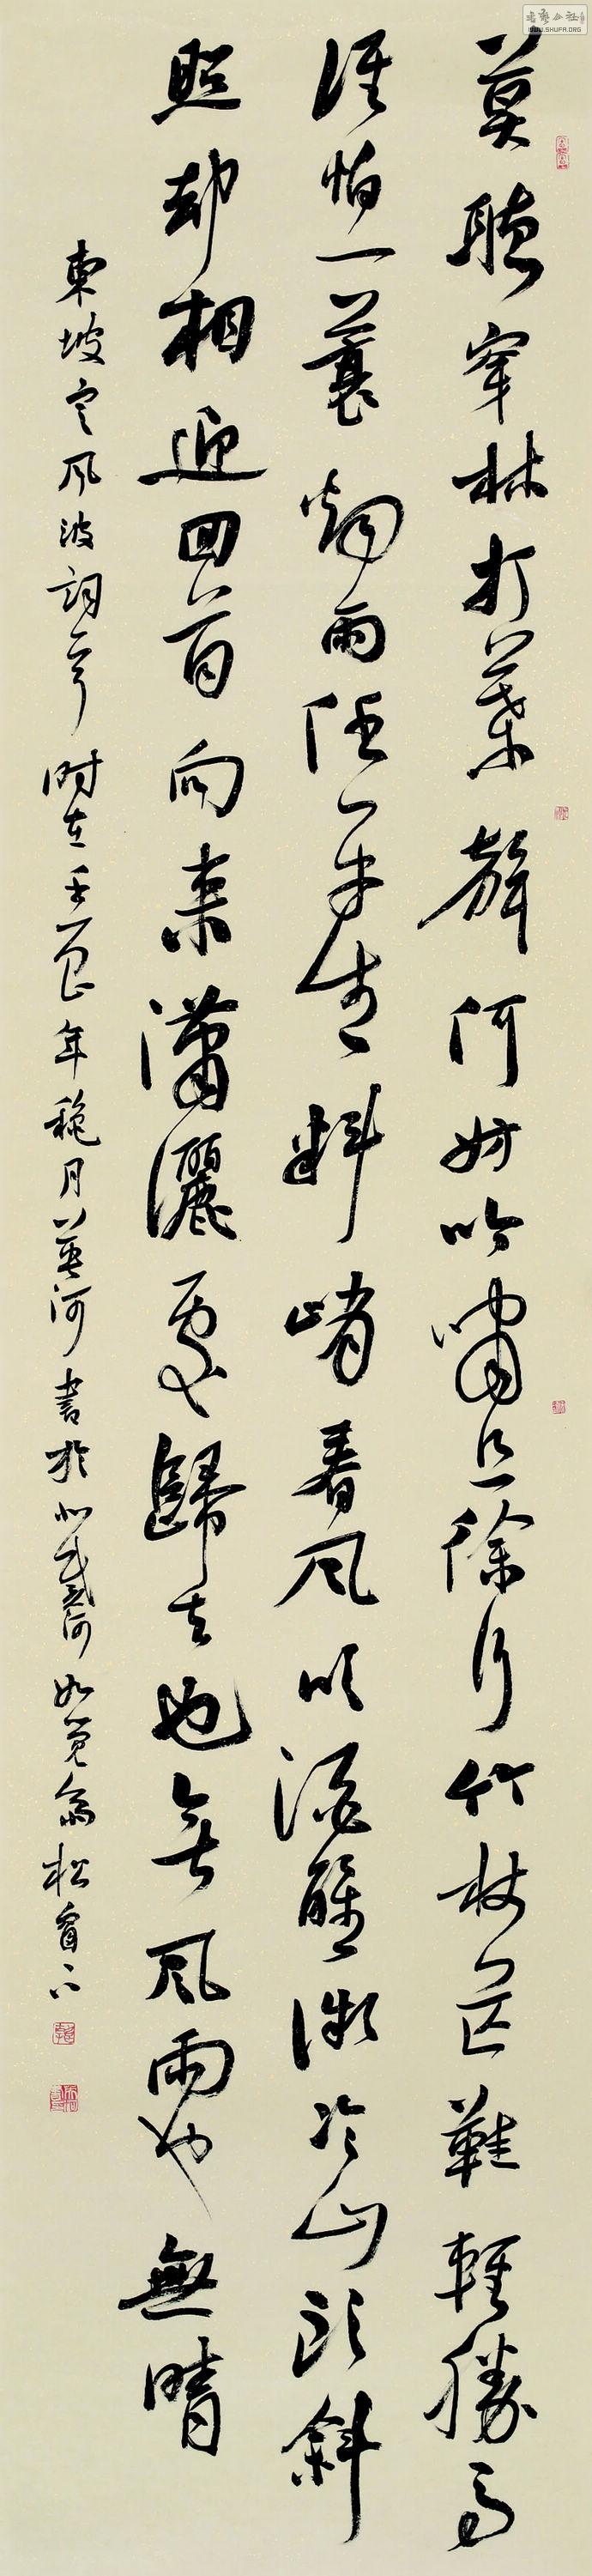 莫聽穿林打葉聲何妨吟嘯且徐行竹杖芒鞋輕勝馬
誰怕一蓑烟雨任平生料峭春風吹酒醒微冷山頭斜
照却相迎回首向來瀟灑處歸去也無風雨也無晴
東坡定風波詞 時在壬辰年 月 河書於北戴河 松窗下
WWW.SHUFA.ORG